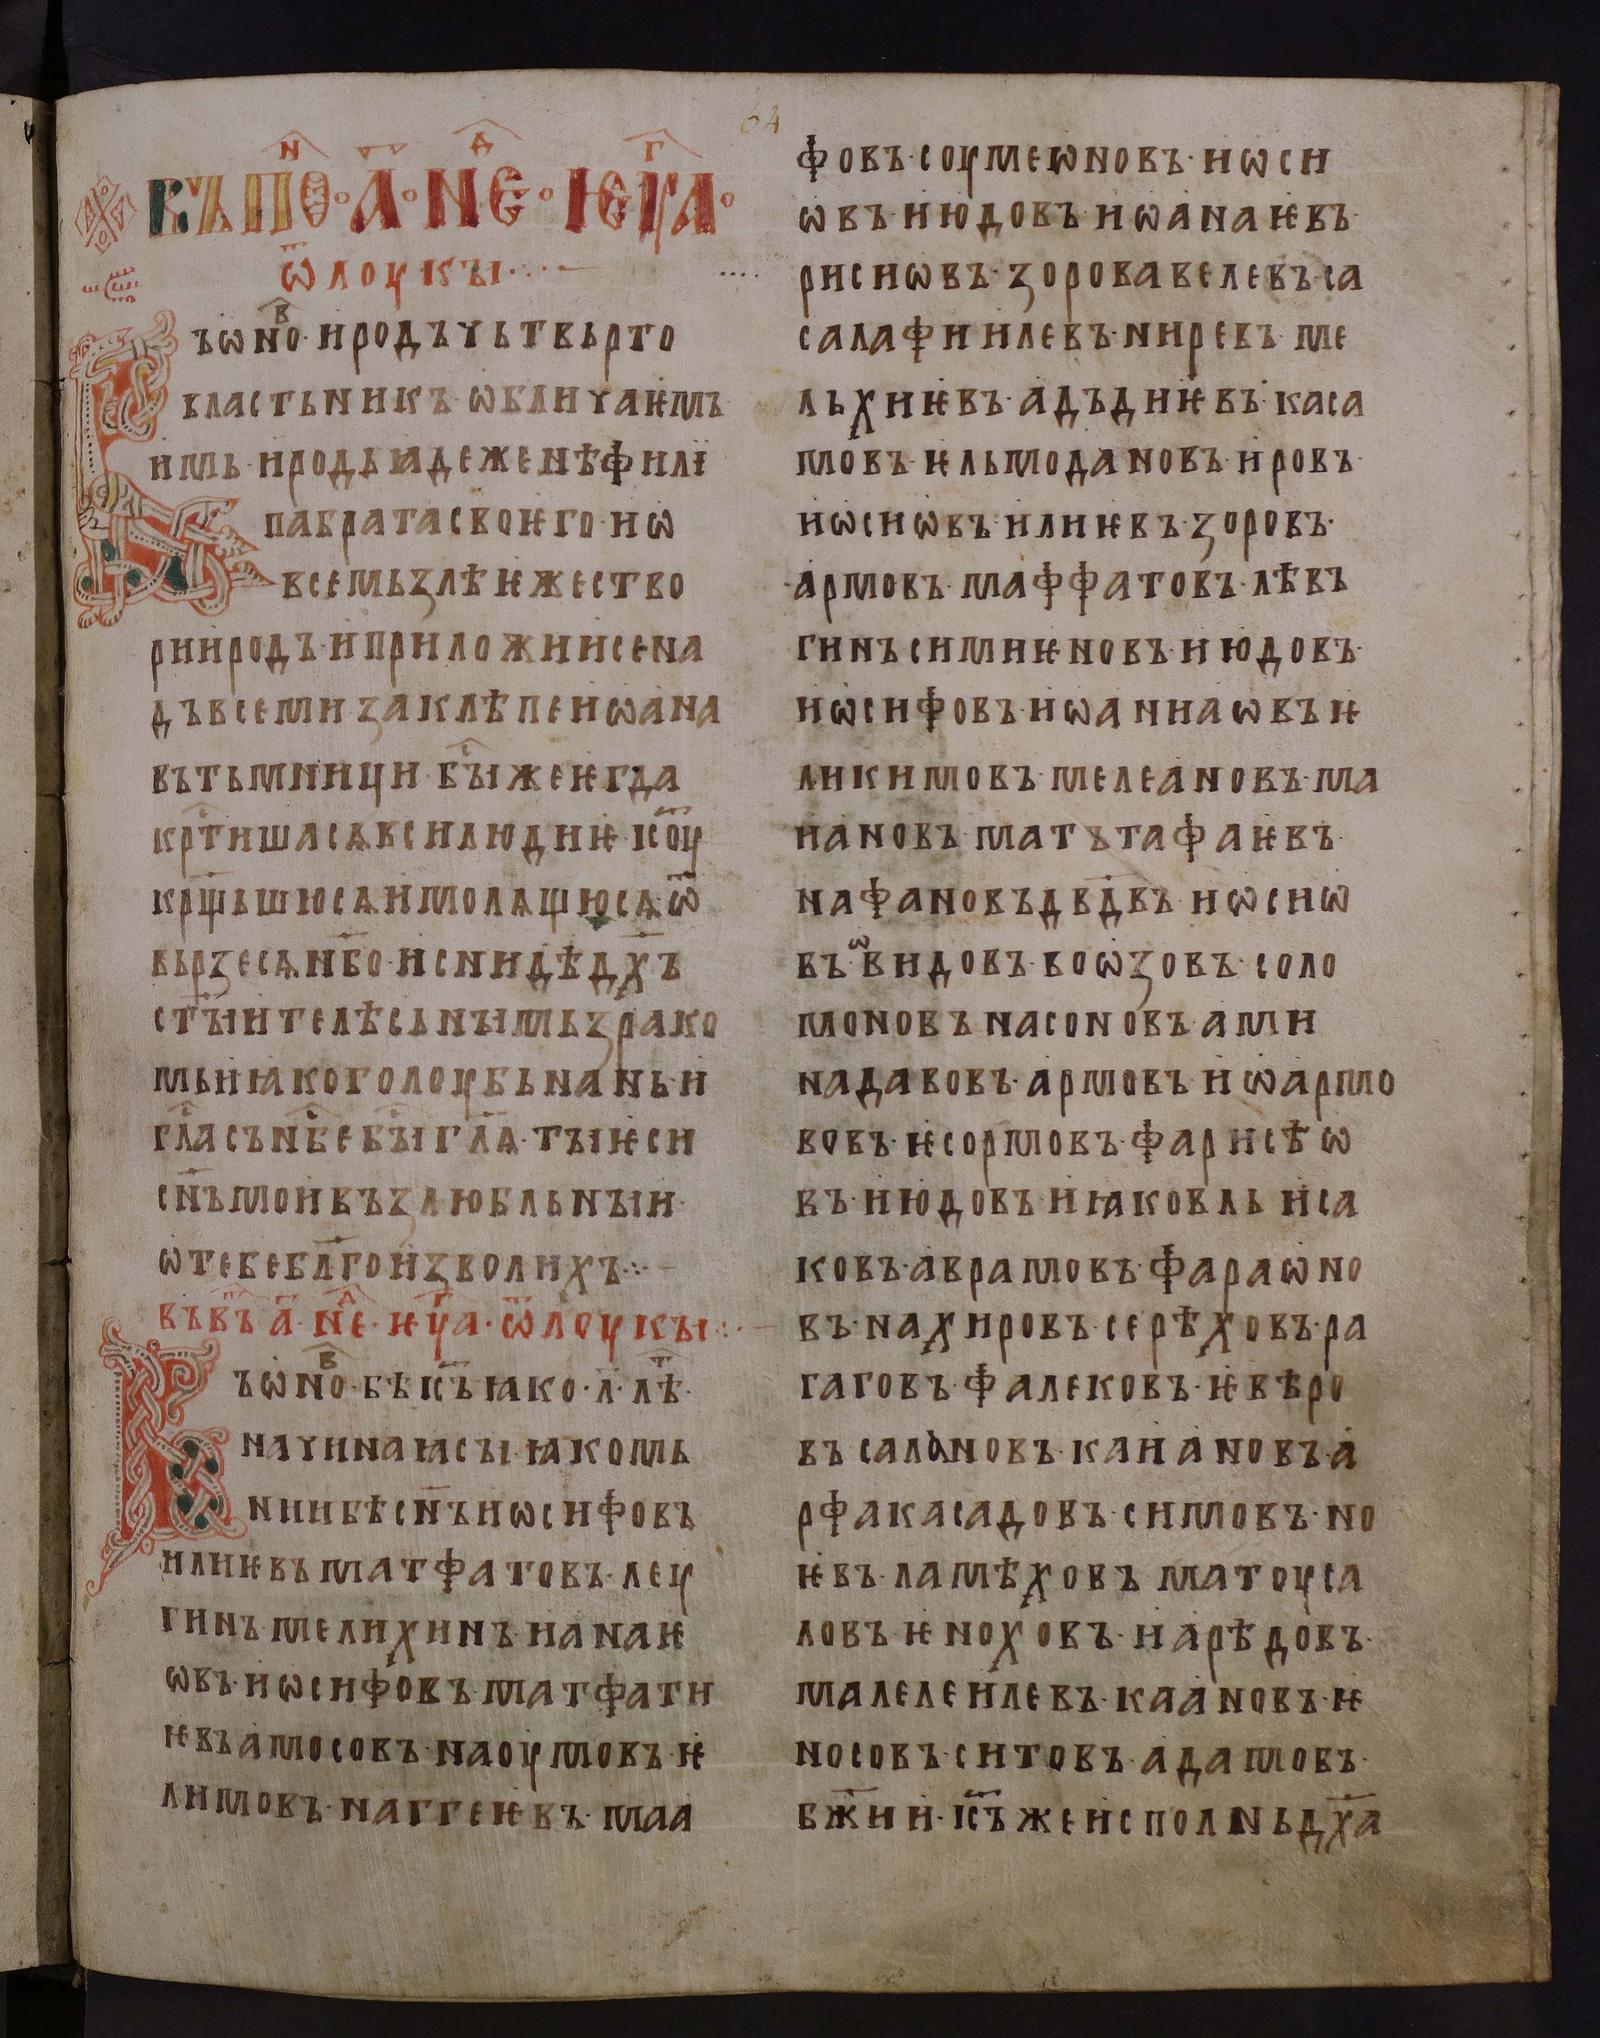 64
въ ѱⷩ҇ по҃·а҃·нⷣе·ѥуⷢа·
ѿ лоукꙑ·
въ ѡⷡно·иродъ чьтвьрто
властьникъ·ѡбличаѥмъ
имь·иродьꙗдеженѣфилї
па брата своѥго·и ѡ
всемь ꙁлѣ ѥже ство
ри иродъ·и приложи и се на
дъ всеми ꙁаклѣпе иѡана
въ тьмници·бꙑⷭ же ѥгда
крⷭтиша сѧ вси людиѥ·їс҃оу
крщ҃ьшю сѧ и молѧщю сѧ·ѿ
вьрꙁе сѧ нб҃о·и съниде дх҃ъ
ст҃ꙑи телѣсьнꙑмь ꙁрако
мь ꙗко голоубь на нь·и
глⷭасъ нб҃се бꙑⷭ гл҃ѧ·тꙑ ѥси
сн҃ъ мои въꙁлюбльнꙑи·
ѡ тебе бл҃гоиꙁволихъ·
въ въⷡ҃ а҃·нⷣе·ѥуⷢа·ѿ лоукꙑ
ъ ѡⷡно·бѣ їс҃ъ ꙗко·л҃·лѣⷮ·
начинаꙗ сꙑ·ꙗко мь
нии бѣ сн҃ъ иѡсифовъ
илиѥвъ матфатовъ·леу
гинъ·мелихинъ·ианаѥ
ѡвъ·иѡсифовъ·матфати
ѥвъ амосовъ·наоумовъ·ѥ
лимовъ·наггеѥвъ·маа
фовъ·соумеѡновъ·иѡси
ѡвъ·июдовъ·иѡанаѥвъ·
рисиѡвъ·ꙁоровавелевъ·са
салафиилевъ·нировъ·ме
льхиѥвъ·адъдиѥвъ·каса
мовъ·ѥльмодановъ·ировъ·
иѡсиѡвъ·илиѥвъ·ꙁоровъ·
армовъ·маффатовъ·лѣвъ
гинъ симиѥновъ·июдовъ·
иѡсифовъ·иѡаннаѡвъ ѥ
лиакимовъ·мелеановъ·ма
иановъ·матътафаѥвъ·
нафановъ двд҃въ·иѡсиѡ
въ·ѡвидовъ·воѡꙁовъ·соло
моновъ насоновъ·ами
надавовъ·армовъ·иѡармо
вовъ·ѥсормовъ·фарисѣѡ
въ·июдовъ·иꙗковль иса
ковъ·аврамовъ·фараѡно
въ·нахировъ·серѣховъ·ра
гаговъ·фалековъ·ѥвѣро
въ салановъ·каиановъ·а
рфакасадовъ·симовъ·но
ѥвъ·ламѣховъ матоуса
ловъ ѥноховъ·иарѣдовъ·
малелеилевъ·каановъ·ѥ
носовъ·ситовъ·адамовъ·
бж҃ии·їс҃ъ же исполнь дх҃а